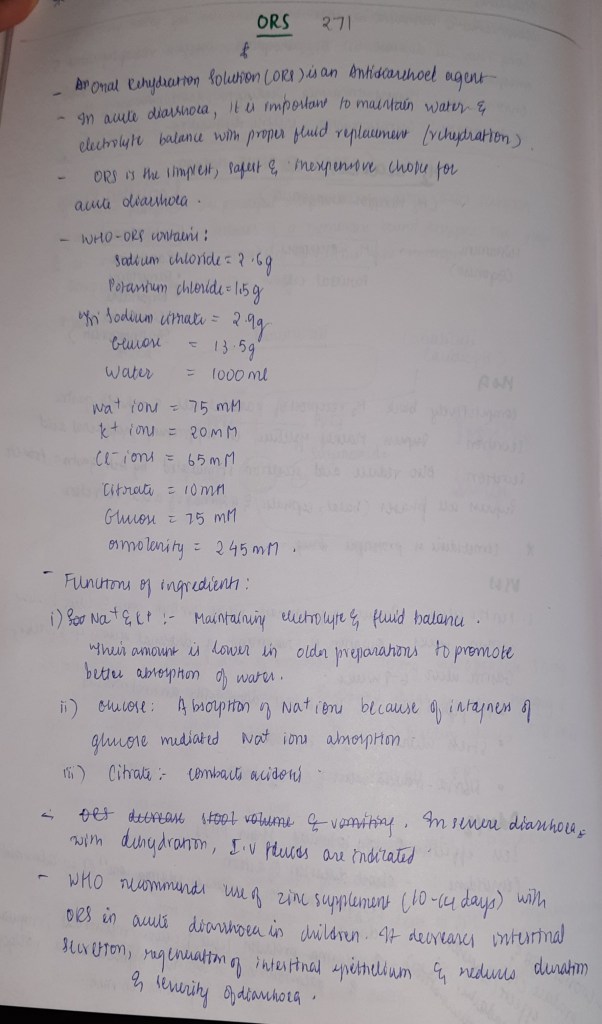 ORS 271
- An Oral Rehydration Solution (ORS) is an Antidiarrhoel agent
- In acute diarrhoea, it is important to maintain water &
electrolyte balance with proper fluid replacement (rehydration)
- ORS is the simplest, safest & inexpensive choice for
acute diarrhoea.
- WHO-ORS contains:
Sodium chloride = 2.6g
Potassium chloride = 1.5g
Tri Sodium citrate = 2.9g
Glucose = 13.5g
Water = 1000 ml
Na+ ions = 75 mM
K+ ions = 20 mM
Cl- ions = 65 mM
Citrate = 10 mM
Glucose = 75 mM
Osmolarity = 245 mM.
- Functions of ingredients:
i) Na+ & K+ :- Maintaining electrolyte & fluid balance.
Their amount is lower in older preparations to promote
better absorption of water.
ii) Glucose: Absorption of Na+ ions because of intactness of
glucose mediated Na+ ions absorption
iii) Citrate :- combats acidosis
- ORS decrease stool volume & vomiting. In severe diarrhoea
with dehydration, I.V fluids are indicated.
- WHO recommends use of zinc supplement (10-14 days) with
ORS in acute diarrhoea in children. It decreases intestinal
secretion, regeneration of intestinal epithelium & reduces duration
& severity of diarrhoea.